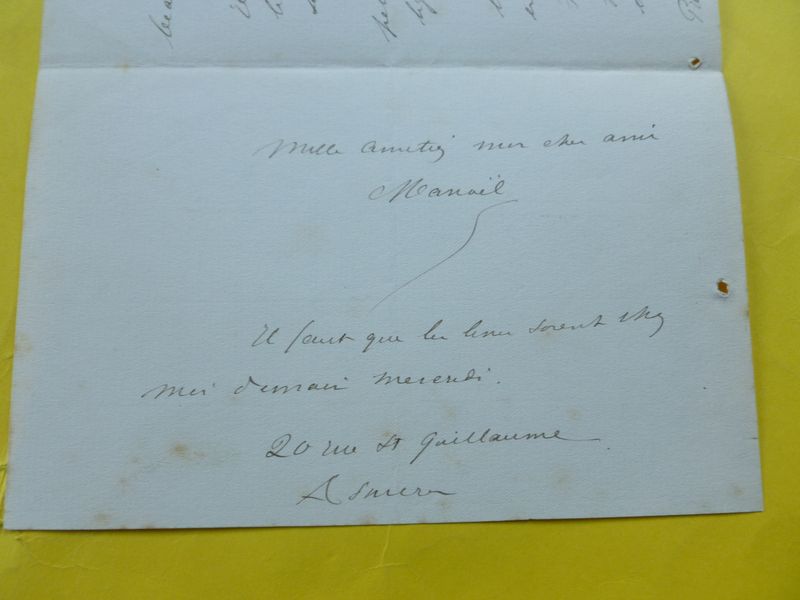 Mille amitiés mon cher ami
Manoël
Il faut que les livres soient chez
moi demain mercredi.
20 rue St Guillaume